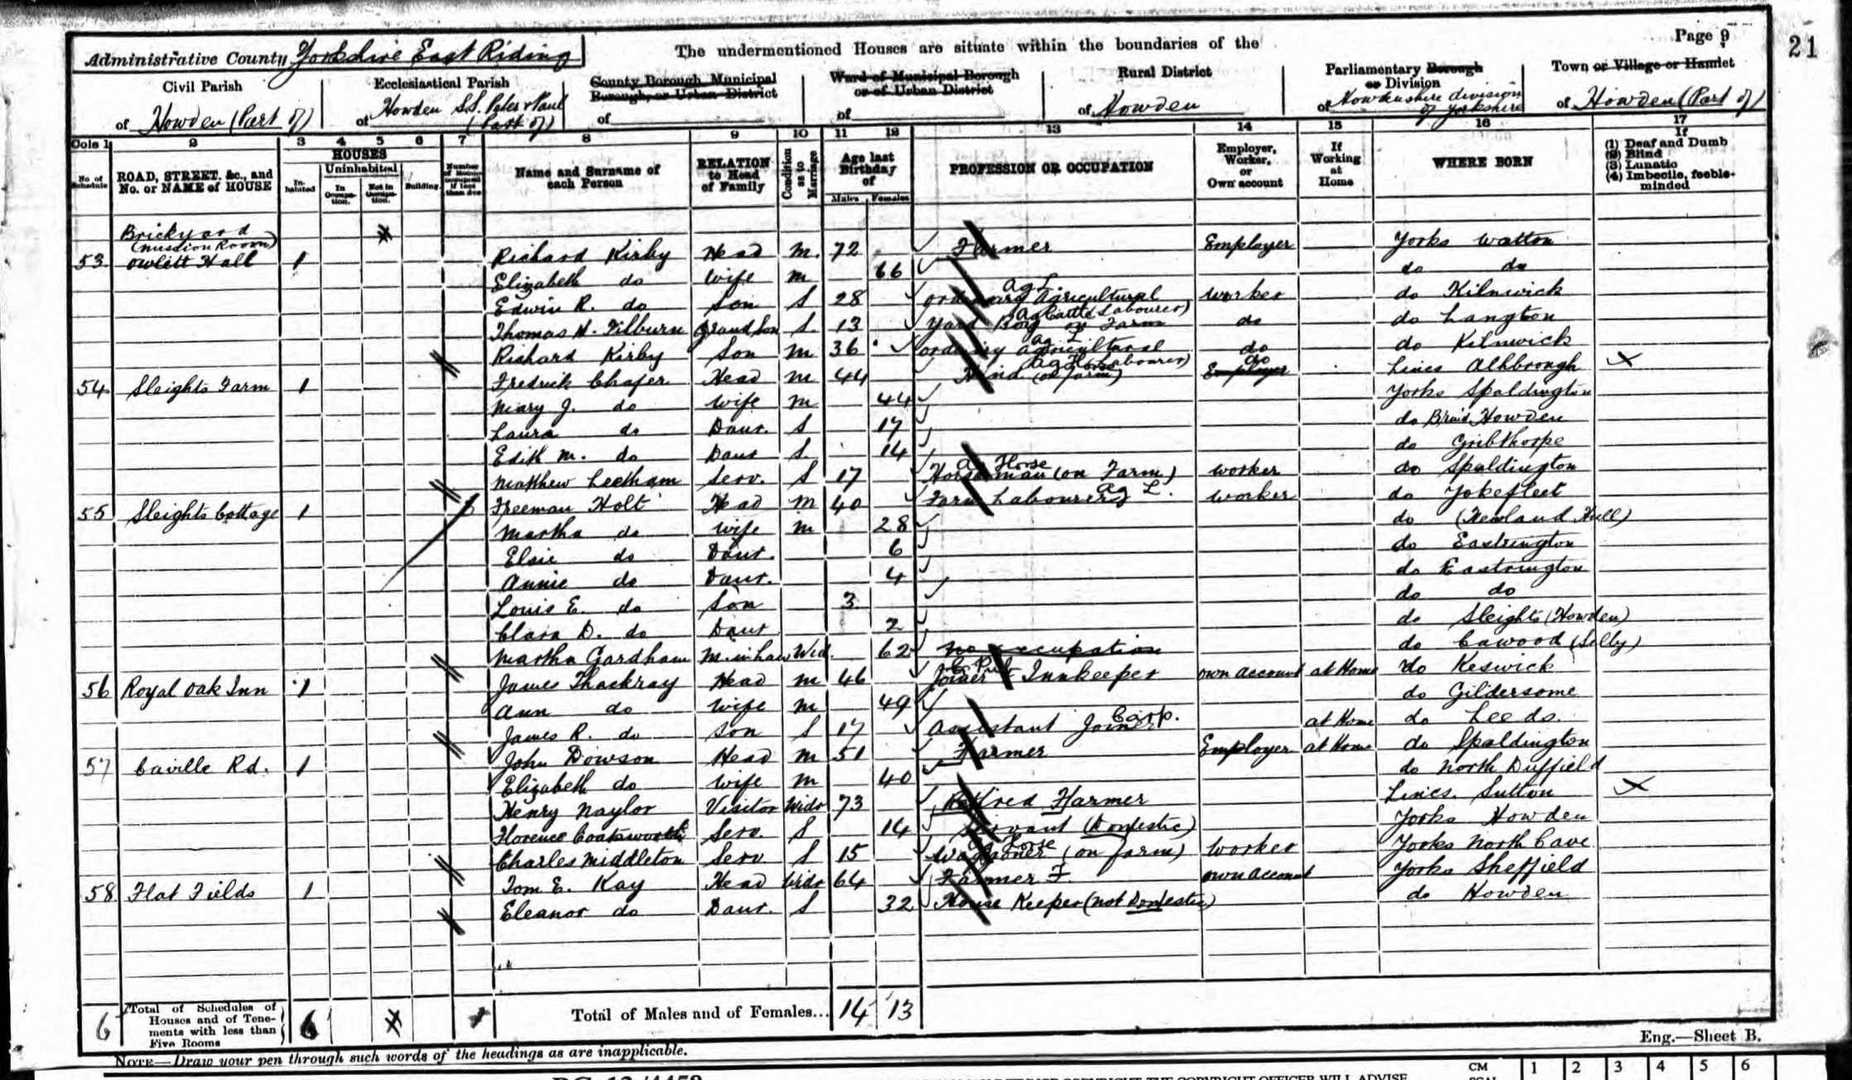 Page 9
21
Administrative County Yorkshire East Riding
The undermentioned Houses are situate within the boundaries of the
Civil Parish
of Howden (Part of)
Ecclesiastical Parish
of Howden S.S. Peter & Paul (Part of)
County Borough, Municipal Borough, or Urban District
of
Ward of Municipal Borough or of Urban District
of
Rural District
of Howden
Parliamentary Borough or Division
of Howdenshire division of Yorkshire
Town or Village or Hamlet
of Howden (Part of)
Cols 1 2 3 4 5 6 7 8 9 10 11 12 13 14 15 16 17
No. of Schedule
ROAD, STREET, &c., and No. or NAME of HOUSE
HOUSES
Inhabited
Uninhabited
In Occupation.
Not in Occupation.
Building.
Number of Rooms occupied if less than five
Name and Surname of each Person
RELATION to Head of Family
Condition as to Marriage
Age last Birthday of
Males Females
PROFESSION OR OCCUPATION
Employer, Worker, or Own account
If Working at Home
WHERE BORN
If
(1) Deaf and Dumb
(2) Blind
(3) Lunatic
(4) Imbecile, feeble-minded
Brickyard
(mission Room)
53 Owlett Hall 1 Richard Kirby Head M. 72 Farmer Employer Yorks Watton
Elizabeth do Wife M 66 do do
Edwin R. do Son S 28 ordinary Agricultural Ag L. worker do Kilnwick
Thomas H. Tilburn Grand Son S. 13 Yard Boy on Farm Ag Cattle (Labourer) do do Langton
Richard Kirby Son M 36 ordinary agricultural ag L (Labourer) do do Kilnwick
54 Sleights Farm 1 Fredrick Chafer Head M 44 Hind (on farm) Ag Horse Employer do Lincs Alkborough X
Mary J. do Wife M 44 Yorks Spaldington
Laura do Daur. S 17 do Howden
Edith M. do Daur S 14 do Gribthorpe
Matthew Leetham Serv. S 17 Horseman (on Farm) ag Horse worker do Spaldington
55 Sleights Cottage 1 Freeman Holt Head M 40 Farm Labourer Ag L. worker do Yokefleet
Martha do Wife M 28 do (Newland Hull)
Elsie do Daur. 6 do Eastrington
Annie do Daur. 4 do Eastrington
Louis E. do Son 3 do do
Clara D. do Daur 2 do Sleights (Howden)
Martha Gardham M. in Law Wid. 62 No occupation do Cawood (Selby)
56 Royal Oak Inn 1 James Thackray Head M 46 Joiner & Innkeeper own account at Home do Keswick
Ann do Wife M 49 do Gildersome
James R. do Son S 17 Assistant Joiner Carp. at Home do Leeds.
57 Caville Rd. 1 John Dowson Head M 51 Farmer Employer at Home do Spaldington
Elizabeth do Wife M 40 do North Duffield
Henry Naylor Visitor Widr 73 Retired Farmer Lincs. Sutton X
Florence Coatsworth Serv S 14 Servant (Domestic) Yorks Howden
Charles Middleton Serv S 15 Waggoner (on farm) ag Horse worker Yorks North Cave
58 Flat Fields 1 Tom E. Kay Head Widr 64 Farmer F. own account Yorks Sheffield
Eleanor do Daur. S 32 House Keeper (not Domestic) do Howden
6 Total of Schedules of Houses and of Tenements with less than Five Rooms 6
Total of Males and of Females... 14 13
Eng.—Sheet B.
NOTE—Draw your pen through such words of the headings as are inapplicable.
CM 1 2 3 4 5 6